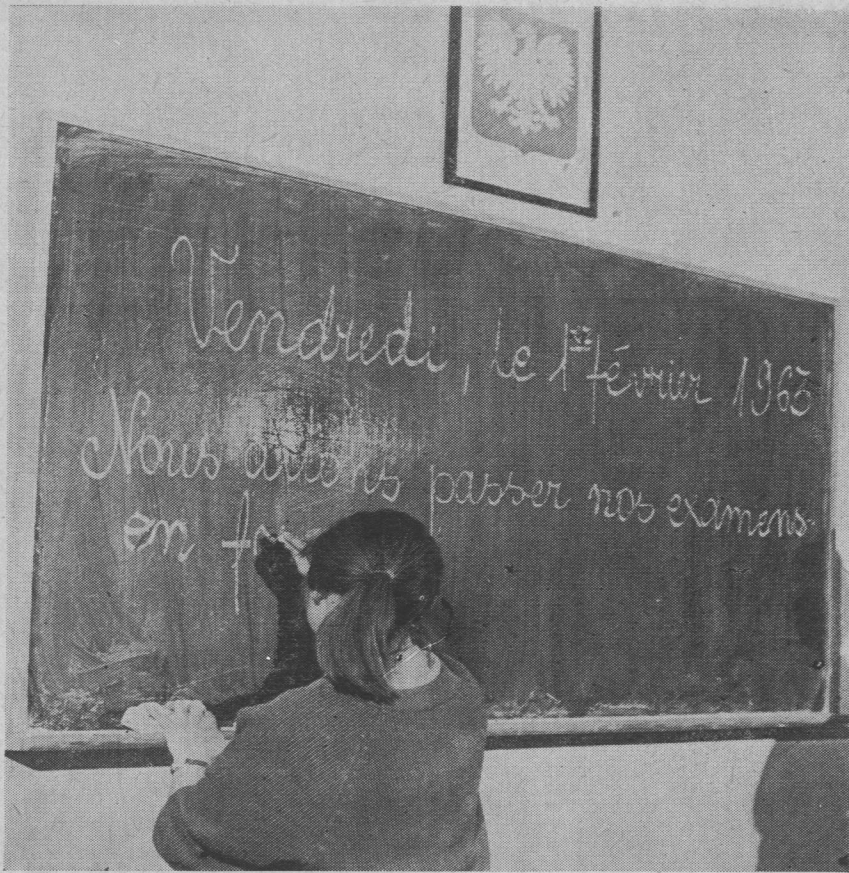 Vendredi, le 1er février 1963
Nous allons passer nos examens
en f